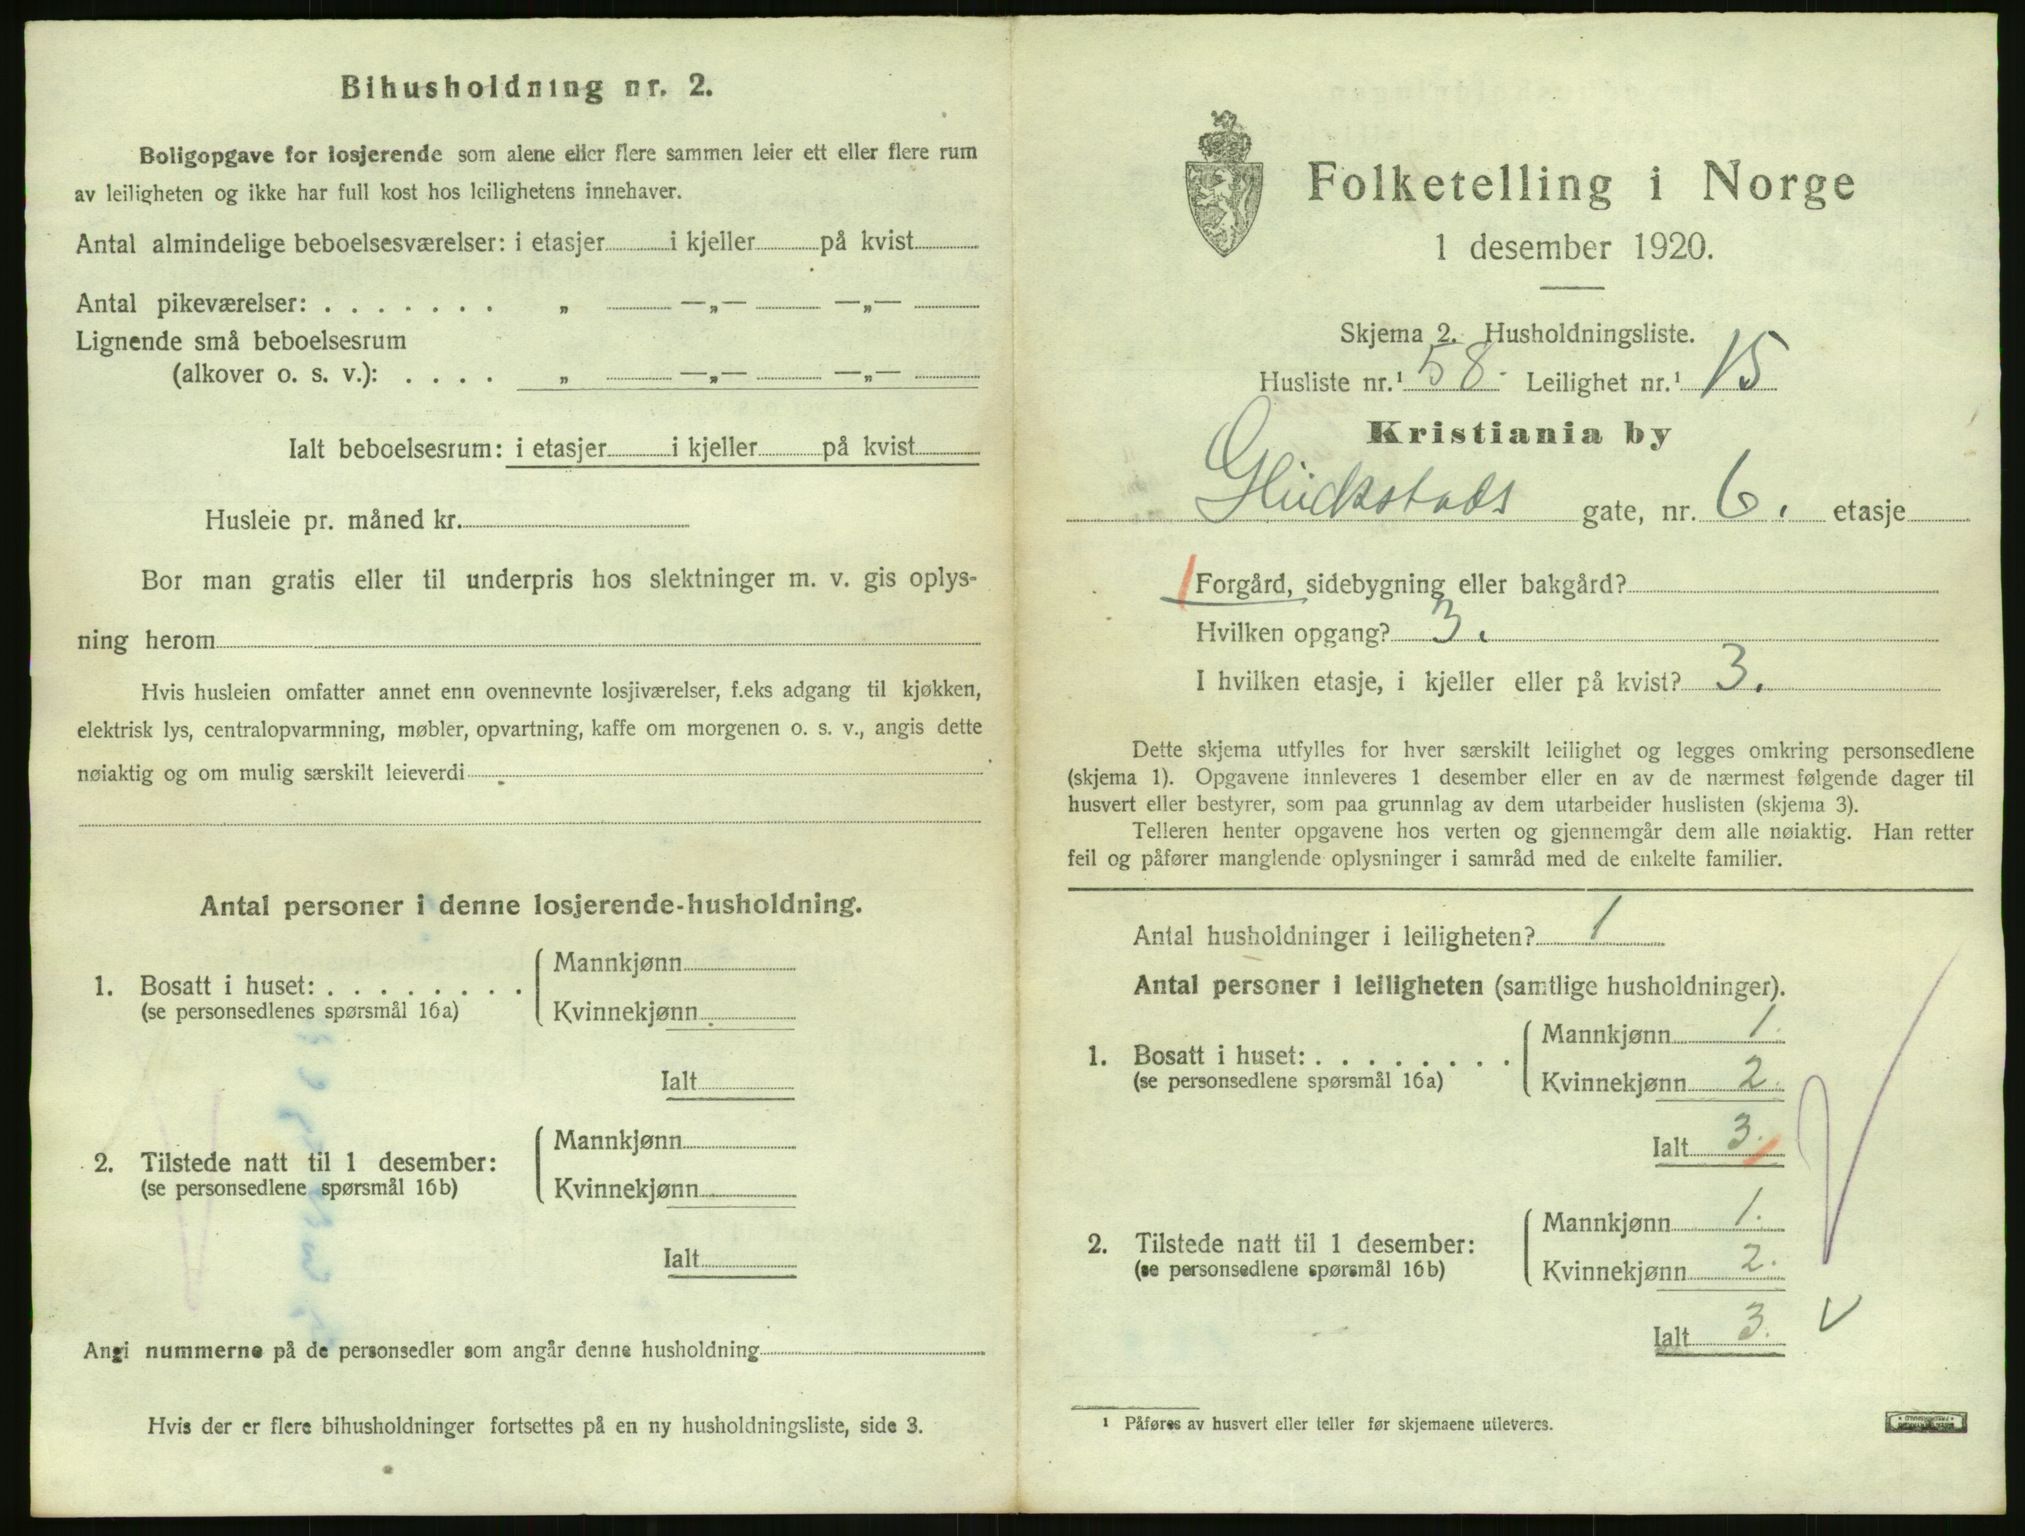 Bihusholdning nr. 2.
Boligopgave for losjerende som alene eller flere sammen leier ett eller flere rum
av leiligheten og ikke har full kost hos leilighetens innehaver.
Antal almindelige beboelsesværelser: i etasjer i kjeller på kvist
Antal pikeværelser: . . . . . . . „ —„— —„—
Lignende små beboelsesrum
(alkover o. s. v.): . . . . „ —„— —„—
Ialt beboelsesrum: i etasjer i kjeller på kvist
Husleie pr. måned kr.
Bor man gratis eller til underpris hos slektninger m. v. gis oplys-
ning herom
Hvis husleien omfatter annet enn ovennevnte losjiværelser, f.eks adgang til kjøkken,
elektrisk lys, centralopvarmning, møbler, opvartning, kaffe om morgenen o. s. v., angis dette
nøiaktig og om mulig særskilt leieverdi
Antal personer i denne losjerende-husholdning.
Mannkjønn
1. Bosatt i huset: . . . . . . . .
(se personsedlenes spørsmål 16a)
Kvinnekjønn
Ialt
Mannkjønn
2. Tilstede natt til 1 desember:
(se personsedlene spørsmål 16b)
Kvinnekjønn
Ialt
Angi nummerne på de personsedler som angår denne husholdning
Hvis der er flere bihusholdninger fortsettes på en ny husholdningsliste, side 3.
Folketelling i Norge
1 desember 1920.
Skjema 2. Husholdningsliste.
Husliste nr.¹ 58. Leilighet nr.¹ 15
Kristiania by
Glückstads gate, nr. 6. etasje
Forgård, sidebygning eller bakgård?
Hvilken opgang? 3.
I hvilken etasje, i kjeller eller på kvist? 3.
Dette skjema utfylles for hver særskilt leilighet og legges omkring personsedlene
(skjema 1). Opgavene innleveres 1 desember eller en av de nærmest følgende dager til
husvert eller bestyrer, som paa grunnlag av dem utarbeider huslisten (skjema 3).
Telleren henter opgavene hos verten og gjennemgår dem alle nøiaktig. Han retter
feil og påfører manglende oplysninger i samråd med de enkelte familier.
Antal husholdninger i leiligheten? 1
Antal personer i leiligheten (samtlige husholdninger).
Mannkjønn 1.
1. Bosatt i huset: . . . . . . . .
(se personsedlene spørsmål 16a)
Kvinnekjønn 2.
Ialt 3.
Mannkjønn 1.
2. Tilstede natt til 1 desember:
(se personsedlene spørsmål 16b)
Kvinnekjønn 2.
Ialt 3. V
¹ Påføres av husvert eller teller før skjemaene utleveres.